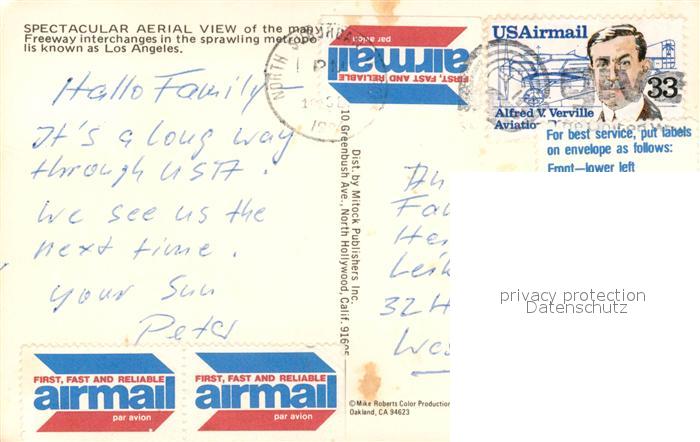 SPECTACULAR AERIAL VIEW of the many
Freeway interchanges in the sprawling metropo
lis known as Los Angeles.
Hallo Family
It's a long way
through USA.
We see us the
next time.
your Sun
Peter
FIRST, FAST AND RELIABLE
airmail
par avion
FIRST, FAST AND RELIABLE
airmail
par avion
Dist. by Mitock Publishers Inc.
10 Greenbush Ave., North Hollywood, Calif.
NORTH
FIRST, FAST AND RELIABLE
airmail
par avion
USAirmail
33
Alfred V. Verville
Aviatio
For best service, put labels
on envelope as follows:
Front—lower left
An
Fa
He
Leik
32H
We
privacy protection
Datenschutz
©Mike Roberts Color Production
Oakland, CA 94623